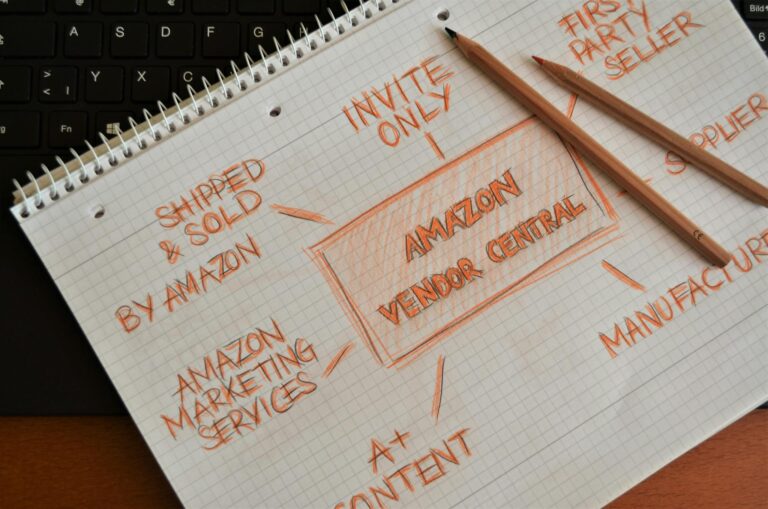 FIRST
PARTY
SELLER
INVITE
ONLY
SUPPLIER
SHIPPED
& SOLD
BY AMAZON
AMAZON
VENDOR CENTRAL
MANUFACTURE
AMAZON
MARKETING
SERVICES
A+
CONTENT
A S D F G
> < Y X C
Fn
Bild
6